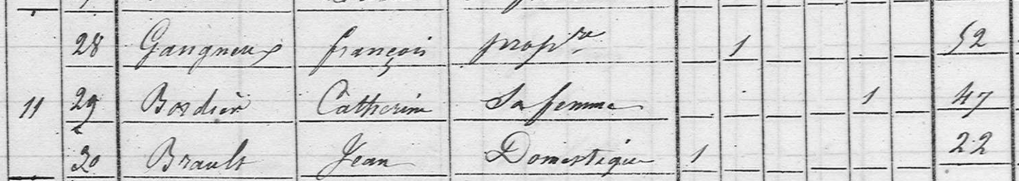 28 Gaugneux françois prop.re 1 52
11 29 Bordier Catherine Sa femme 1 47
30 Brault Jean Domestique 1 22